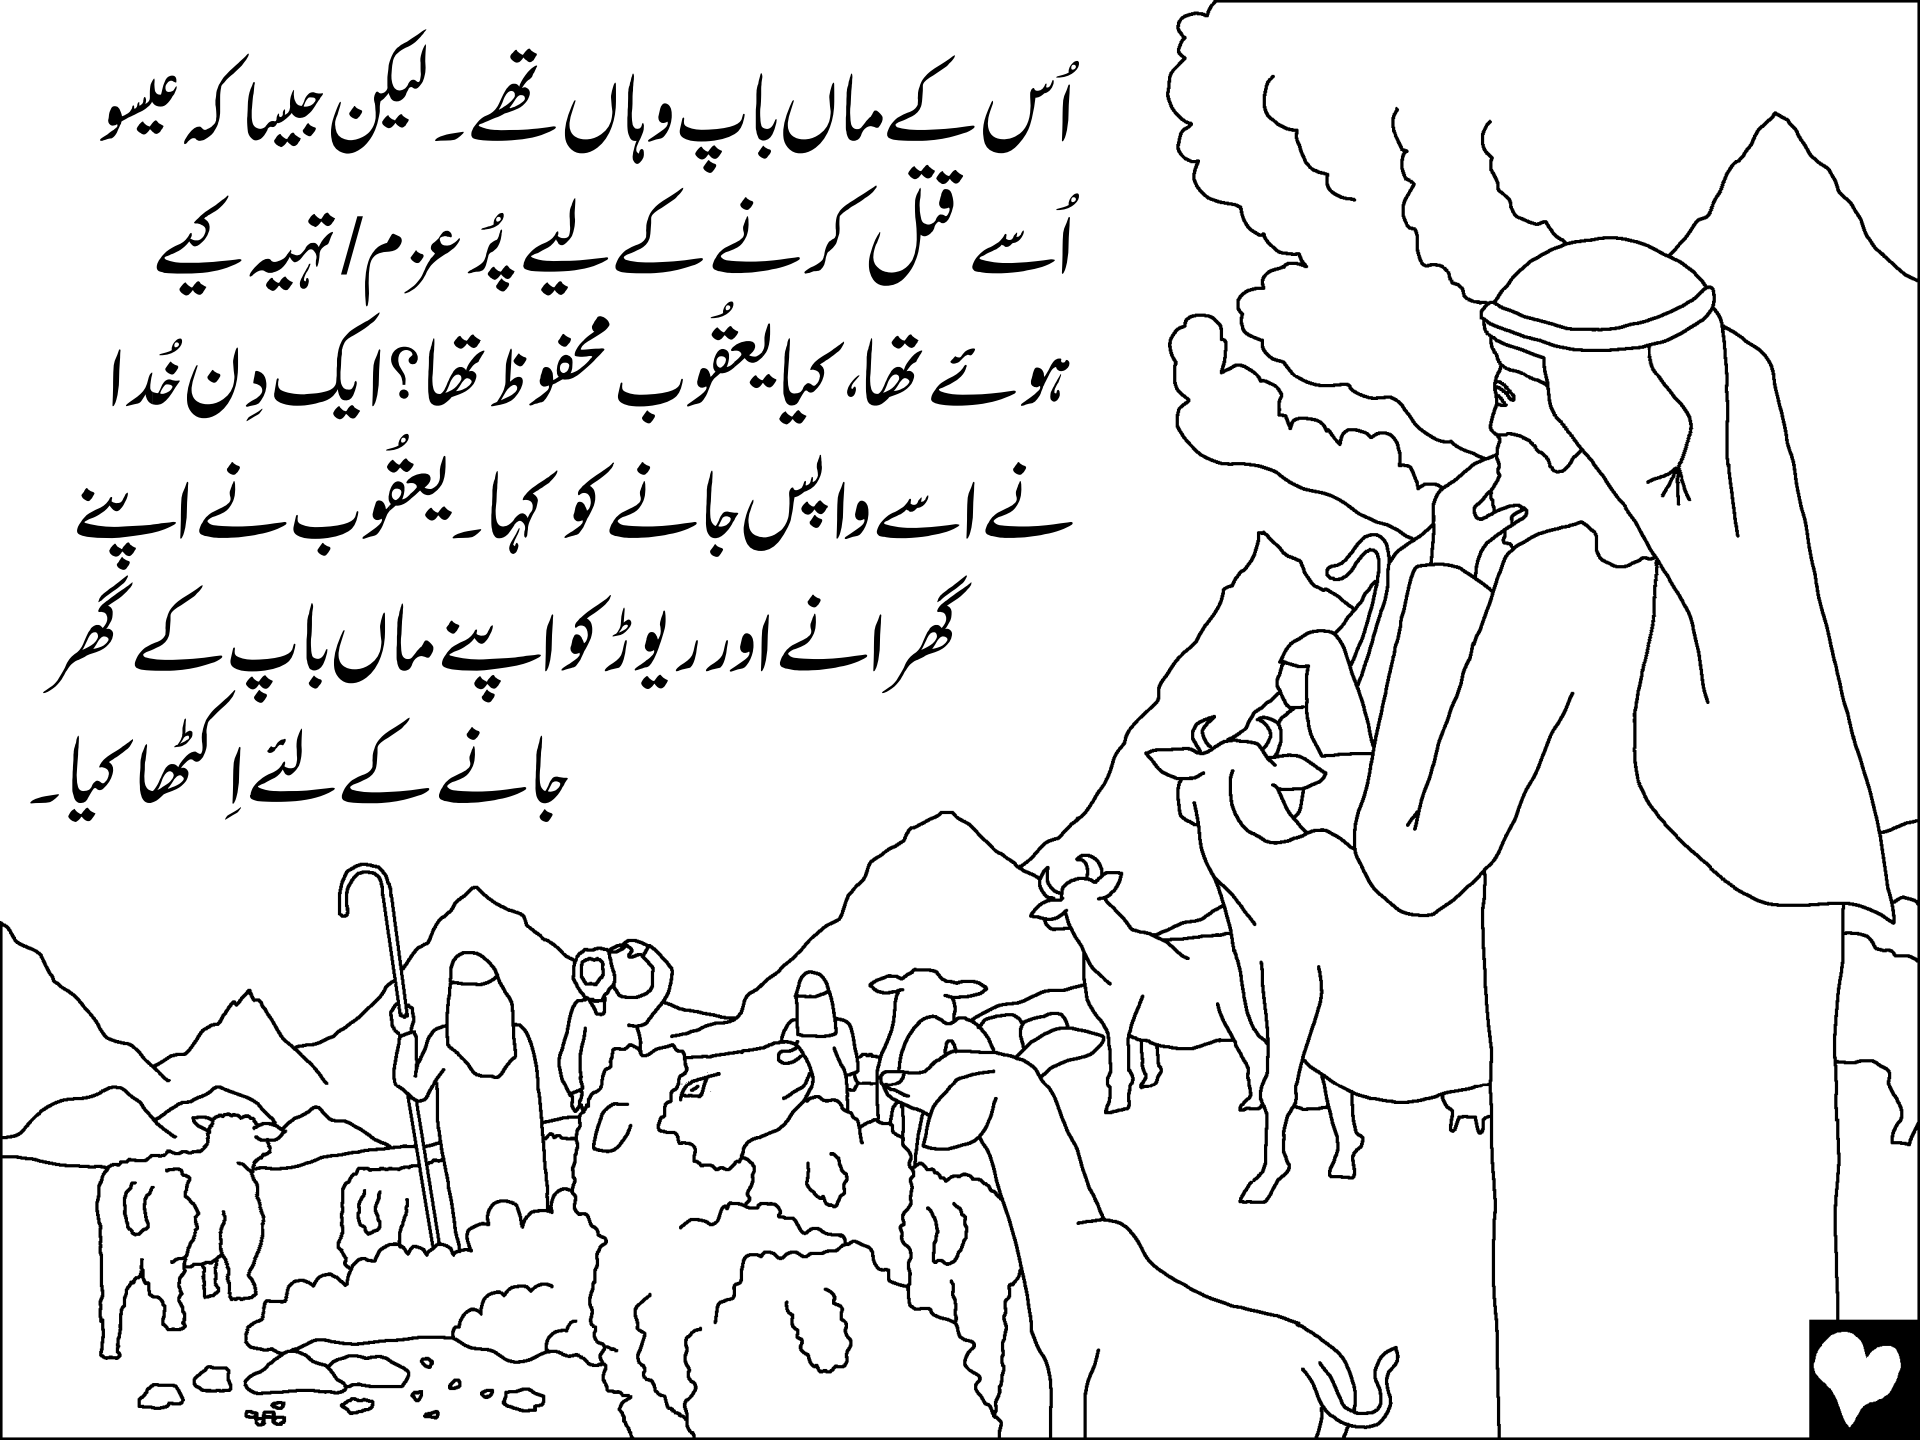 اُس کے ماں باپ وہاں تھے۔ لیکن جیسا کہ عیسو
اُسے قتل کرنے کے لیے پُر عزم/تہیہ کیے
ہوئے تھا، کیا یعقُوب محفوظ تھا؟ ایک دِن خُدا
نے اسے واپس جانے کو کہا۔ یعقُوب نے اپنے
گھرانے اور ریوڑ کو اپنے ماں باپ کے گھر
جانے کے لئے اِکٹھا کیا۔